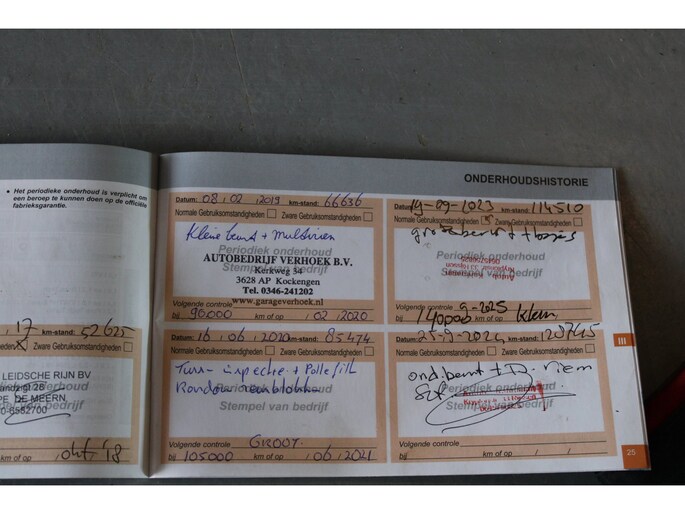 • Het periodieke onderhoud is verplicht om
een beroep te kunnen doen op de officiële
fabrieksgarantie.
17 km-stand: 52625
Zware Gebruiksomstandigheden
LEIDSCHE RIJN BV
DE MEERN
okt '18
ONDERHOUDSHISTORIE
Datum: 08 / 02 / 2019 km-stand: 66636
Normale Gebruiksomstandigheden Zware Gebruiksomstandigheden
Kleine beurt + Multiriem
Periodiek onderhoud
AUTOBEDRIJF VERHOEK B.V.
Kerkweg 34
Stempel van bedrijf
3628 AP Kockengen
Tel. 0346-241202
www.garageverhoek.nl
Volgende controle
bij 90.000 km of op / 02 / 2020
Datum: 19-09-1023 km-stand: 114510
Normale Gebruiksomstandigheden Zware Gebruiksomstandigheden
Periodiek onderhoud
Stempel van bedrijf
Volgende controle 9-2025
bij 140000 km of op Klein
16 / 06 / 2020 km-stand: 85474
Normale Gebruiksomstandigheden Zware Gebruiksomstandigheden
inspectie + Pollenfilt
Periodiek onderhoud
Stempel van bedrijf
Volgende controle GROOT
bij 105000 km of op / 06 / 2021
25-9-2024 km-stand: 120745
Normale Gebruiksomstandigheden Zware Gebruiksomstandigheden
ond.beurt + D. riem
Periodiek onderhoud
Stempel van bedrijf
Volgende controle
bij km of op / /
III
25